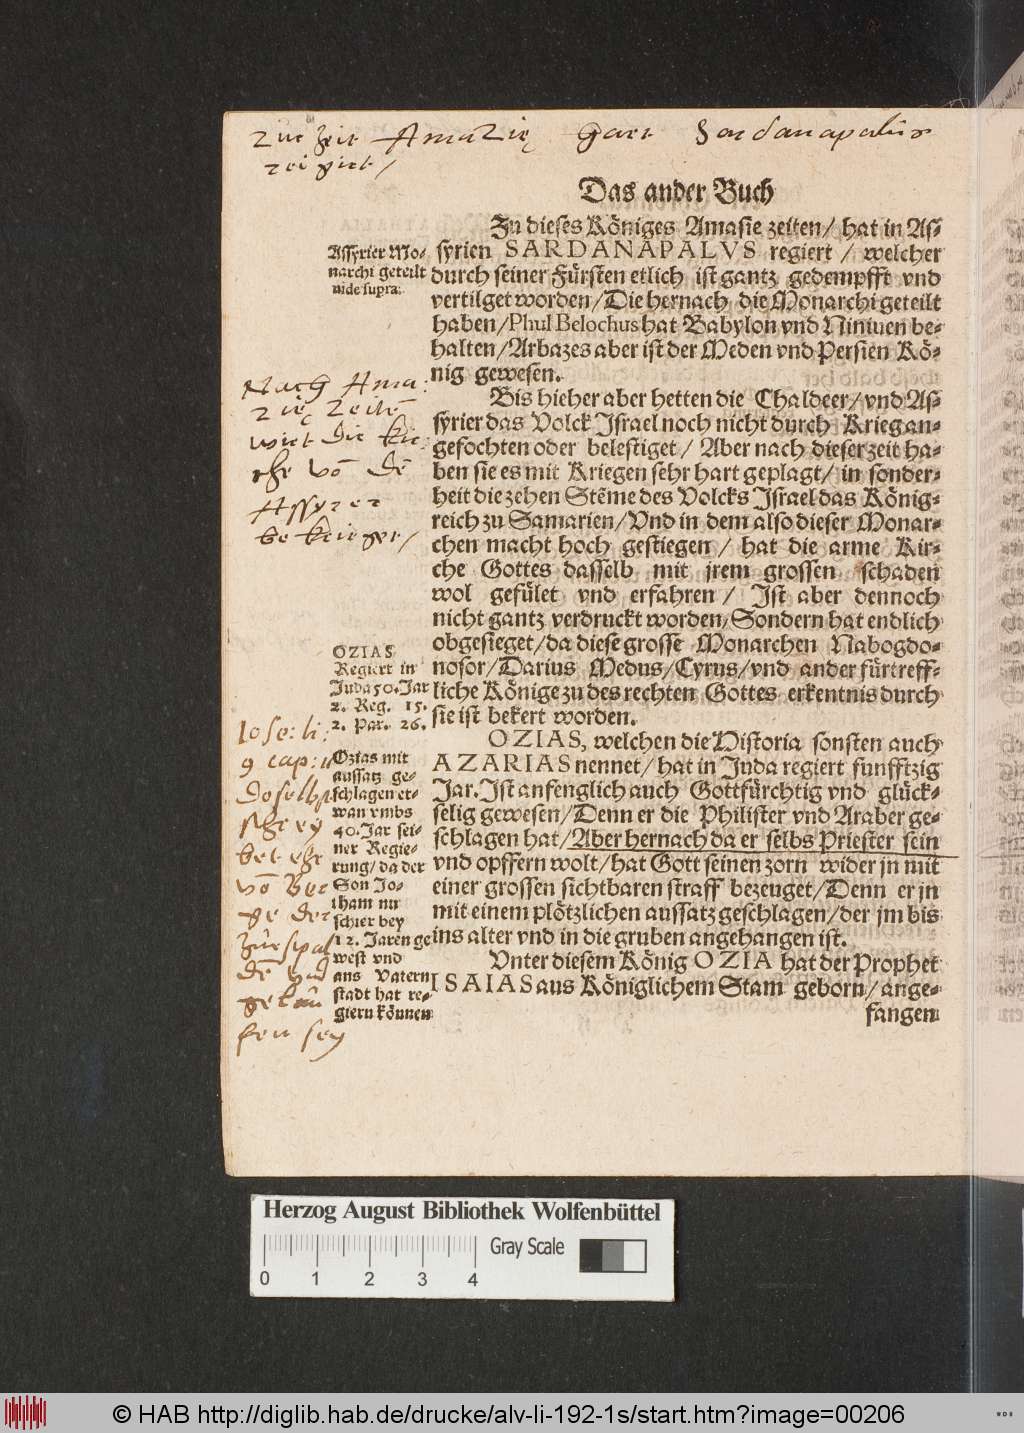 Zur Zeit Amazię hatt Sardanapalus
regirt/
Das ander Buch
Zu dieses Königes Amasie zeiten/ hat in As-
syrien SARDANAPALVS regiert / welcher
durch seiner Fürsten etlich ist gantz gedempfft vnd
vertilget worden/Die hernach die Monarchi geteilt
haben/Phul Belochus hat Babylon vnd Niniuen be-
halten/Arbazes aber ist der Meden vnd Persien Kö-
nig gewesen.
Assyrier Mo-
narchi geteilt
uide supra:
Bis hieher aber hetten die Chaldeer/vnd As-
syrier das Volck Israel noch nicht durch Krieg an-
gefochten oder belestiget / Aber nach dieser zeit ha-
ben sie es mit Kriegen sehr hart geplagt/ in sonder-
heit die zehen Steme des Volcks Israel das König-
reich zu Samarien/Vnd in dem also dieser Monar-
chen macht hoch gestiegen / hat die arme Kir-
che Gottes dasselb mit jrem grossen schaden
wol gefület vnd erfahren / Ist aber dennoch
nicht gantz verdruckt worden/Sondern hat endlich
obgesieget/da diese grosse Monarchen Nabogdo-
nosor/Darius Medus/Cyrus/vnd ander fürtreff-
liche Könige zu des rechten Gottes erkentnis durch
sie ist bekert worden.
Nach Ama:
zię Zeitē
wirt die kir-
che vō dē
Assyrer
bekrieget/
OZIAS, welchen die Historia sonsten auch
AZARIAS nennet/ hat in Juda regiert funfftzig
Jar. Ist anfenglich auch Gottfürchtig vnd glück-
selig gewesen/Denn er die Philister vnd Araber ge-
schlagen hat/Aber hernach da er selbs Priester sein
vnd opffern wolt/hat Gott seinen zorn wider jn mit
einer grossen sichtbaren straff bezeuget/Denn er jn
mit einem plötzlichen aussatz geschlagen/der jm bis
ins alter vnd in die gruben angehangen ist.
OZIAS
Regiert in
Juda 50. Jar
2. Reg. 15.
2. Par. 26.
Ozias mit
aussatz ge-
schlagen et-
wan vmbs
40. Jar sei-
ner Regie-
rung/da der
Son Jo-
tham nur
schier bey
12. Jaren ge
west vnd
ans Vatern
stadt hat re-
giern können
Iose: li:
9 cap: 11
Vnter diesem König OZIA hat der Prophet
ISAIAS aus Königlichem Stam geborn/ ange-
fangen
Herzog August Bibliothek Wolfenbüttel
Gray Scale
0 1 2 3 4
© HAB http://diglib.hab.de/drucke/alv-li-192-1s/start.htm?image=00206